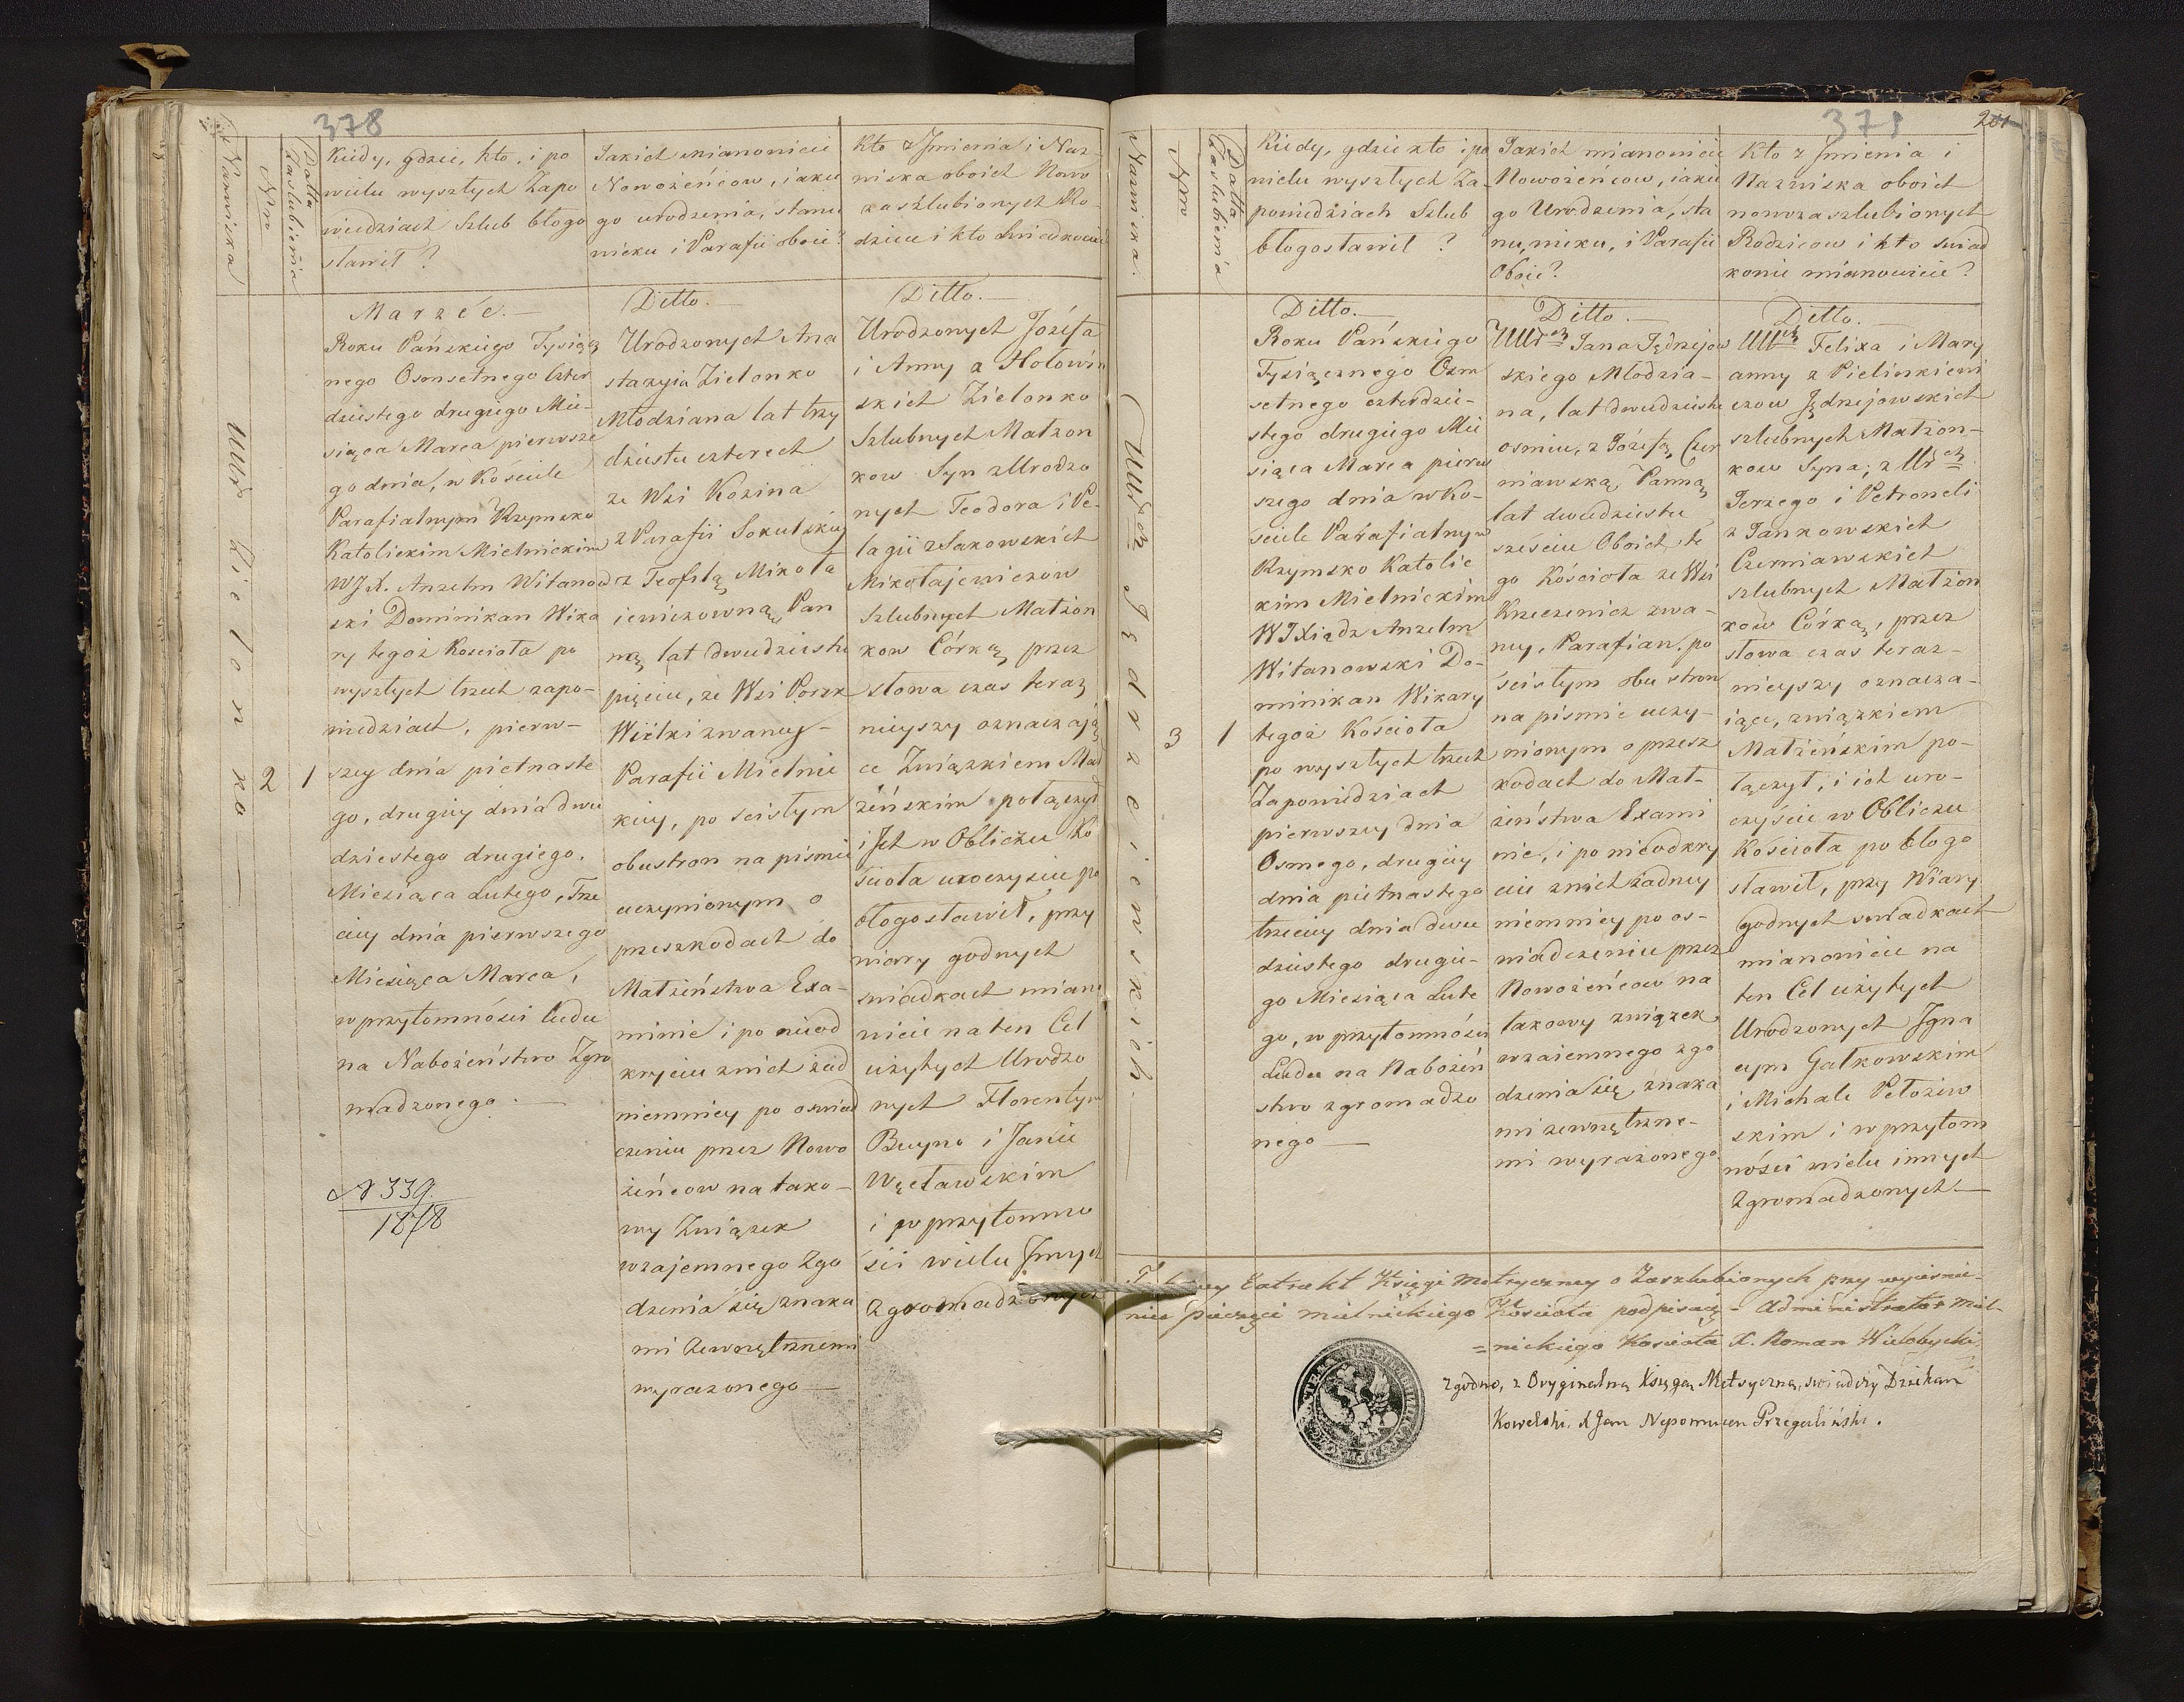 378
Nazwiska
Nro
Datta
Zaslubienia
Kiedy, gdzie, kto, i po
wielu wyszłych Zapo
wiedziach Szlub błogo
sławił?
Jakich mianowicie
Nowożeńcow, iakie
go urodzenia, stanu
wieku i Parafii oboie?
Kto z Jmienia i Naz-
wiska oboich Nowo
zaszlubionych Ro-
dzice i kto Swiadkowie
UUr Zielonko
2
1
Marzéc.
Roku Pańskiego Tysiącz
nego Osmsetnego czter
dziestego drugiego Mie-
siąca Marca pierwsze
go dnia, w Kościele
Parafialnym Rzymsko
Katolickim Mielnickim
WJX. Anzelm Witanow
ski Dominikan Wika
ry tegoż Kościoła po
wyszłych trzech zapo-
wiedziach, pierw-
szey dnia pietnaste
go, drugiey dnia dwu
dziestego drugiego.
Miesiąca Lutego, Trze
ciey dnia pierwszego
Miesiąca Marca,
w przytomności ludu
na Nabożeństwo Zgro
madzonego.
N 339
1878
Ditto.
Urodzonych Ana
stazyia Zielonko
Młodziana lat trzy
dziestu czterech
ze Wsi Kozina
z Parafii Sokulskiey
z Teofilą Mikoła
iewiczowną Pan
ną lat dwudziestu
pięciu, ze Wsi Porsk
Wielki zwaney-
Parafii Mielnic
kiey, po scisłym
obustron na piśmie
uczynionym o
przeszkodach do
Małżeństwa Exa-
minie i po nieod
kryciu znich żad
niemniey po oswiad
czeniu przez Nowo
żeńcow na tako-
wy Związek
wzajemnego Zgo
dzenia się znaka
mi Zewnętrznemi
wyrazonego
Ditto.
Urodzonych Józefa
i Anny z Hołowiń
skich Zielonko
Szlubnych Małżon
kow Syn z Urodzo
nych Teodora i Pe-
lagii z Sakowskich
Mikołajewiczow
Szlubnych Małżon
kow Córką przez
słowa czas teraz
nieyszy oznaczają
ce Związkiem Mał
żeńskim połączył
i Jch w Obliczu Ko
ścioła uroczyście po
błogosławił, przy
wiary godnych
swiadkach miano
wicie na ten Cel
użytych Urodzo
nych Florentym
Buyno i Janie
Węcławskim
i w przytomno
ści wielu Jnnych
Zgromadzonych
371
201
Nazwiska.
Nro
Datta
Zaslubienia
Kiedy, gdzie kto i po
wielu wyszłych Za-
powiedziach Szlub
błogosławił?
Jakich mianowicie
Nowożeńcow, iakie
go Urodzenia, sta
nu, wieku, i Parafii
Oboie?
Kto z Jmienia i
Nazwiska oboich
nowozaszlubionych
Rodzicow i kto swiad
kowie mianowicie?
UUrch Jędrzeiewskich
3
1
Ditto.
Roku Pańskiego
Tysiącznego Osm
setnego czterdzie-
stego drugiego Mie
siąca Marca pierw
szego dnia w Ko-
sciele Parafialnym
Rzymsko Katolic
kim Mielnickim
WJXiądz Anzelm
Witanowski Do-
minikan Wikary
tegoż Kościoła
po wyszłych trzech
Zapowiedziach
pierwszey dnia
Osmego, drugiey
dnia pietnastego
trzeciey dnia dwu
dziestego drugie-
go Miesiąca Lute
go, w przytomności
Ludu na Nabożeń
stwo zgromadzo
nego
Ditto.
UUrch Jana Jędrzejow
skiego Młodzia-
na, lat dwudziestu
osmiu, z Józefą Czer
niawską Panną
lat dwudziestu
sześciu Oboich te
go Kościoła ze Wsi
Krzeczewicz zwa-
ney, Parafian, po
scisłym obu stron
na piśmie uczy-
nionym o przesz
kodach do Mał-
żeństwa Exami
nie, i po nieodkry
ciu znich żadney
niemniey po os-
wiadczeniu przez
Nowożeńcow na
takowy związek
wzaiemnego zgo
dzenia się znaka
mi zewnętrzne-
mi wyrażonego
Ditto.
UUrch Felixa i Mary
anny z Pielinkiewi
czow Jędrzejowskich
szlubnych Małżon-
kow Syna, z Urch
Jerzego i Petroneli
z Jankowskich
Czerniawskich
szlubnych Małżon
kow Córką, przez
słowa czas teraz-
nieyszy oznacza-
iące, związkiem
Małżeńskim po-
łączył, i ich uro-
czyście w Obliczu
Kościoła po błogo
sławił, przy Wiary
godnych swiadkach
mianowicie na
ten Cel użytych
Urodzonych Jgna
cym Gałkowskim
i Michale Petoziw
skim i w przytom
ności wielu innych
Zgromadzonych.
Extrakt Xsięgi metryczney o Zaszlubionych przy wyciśnie-
niu pieczęci mielnickiego Kościoła podpisuię - Administrator Miel-
=nickiego Kościoła X. Roman Wielobycki
Zgodno, z Oryginalną Xsięgą Metryczną, swiadczy Dziekan
Kowelski. X Jan Nepomucen Przegaliński.